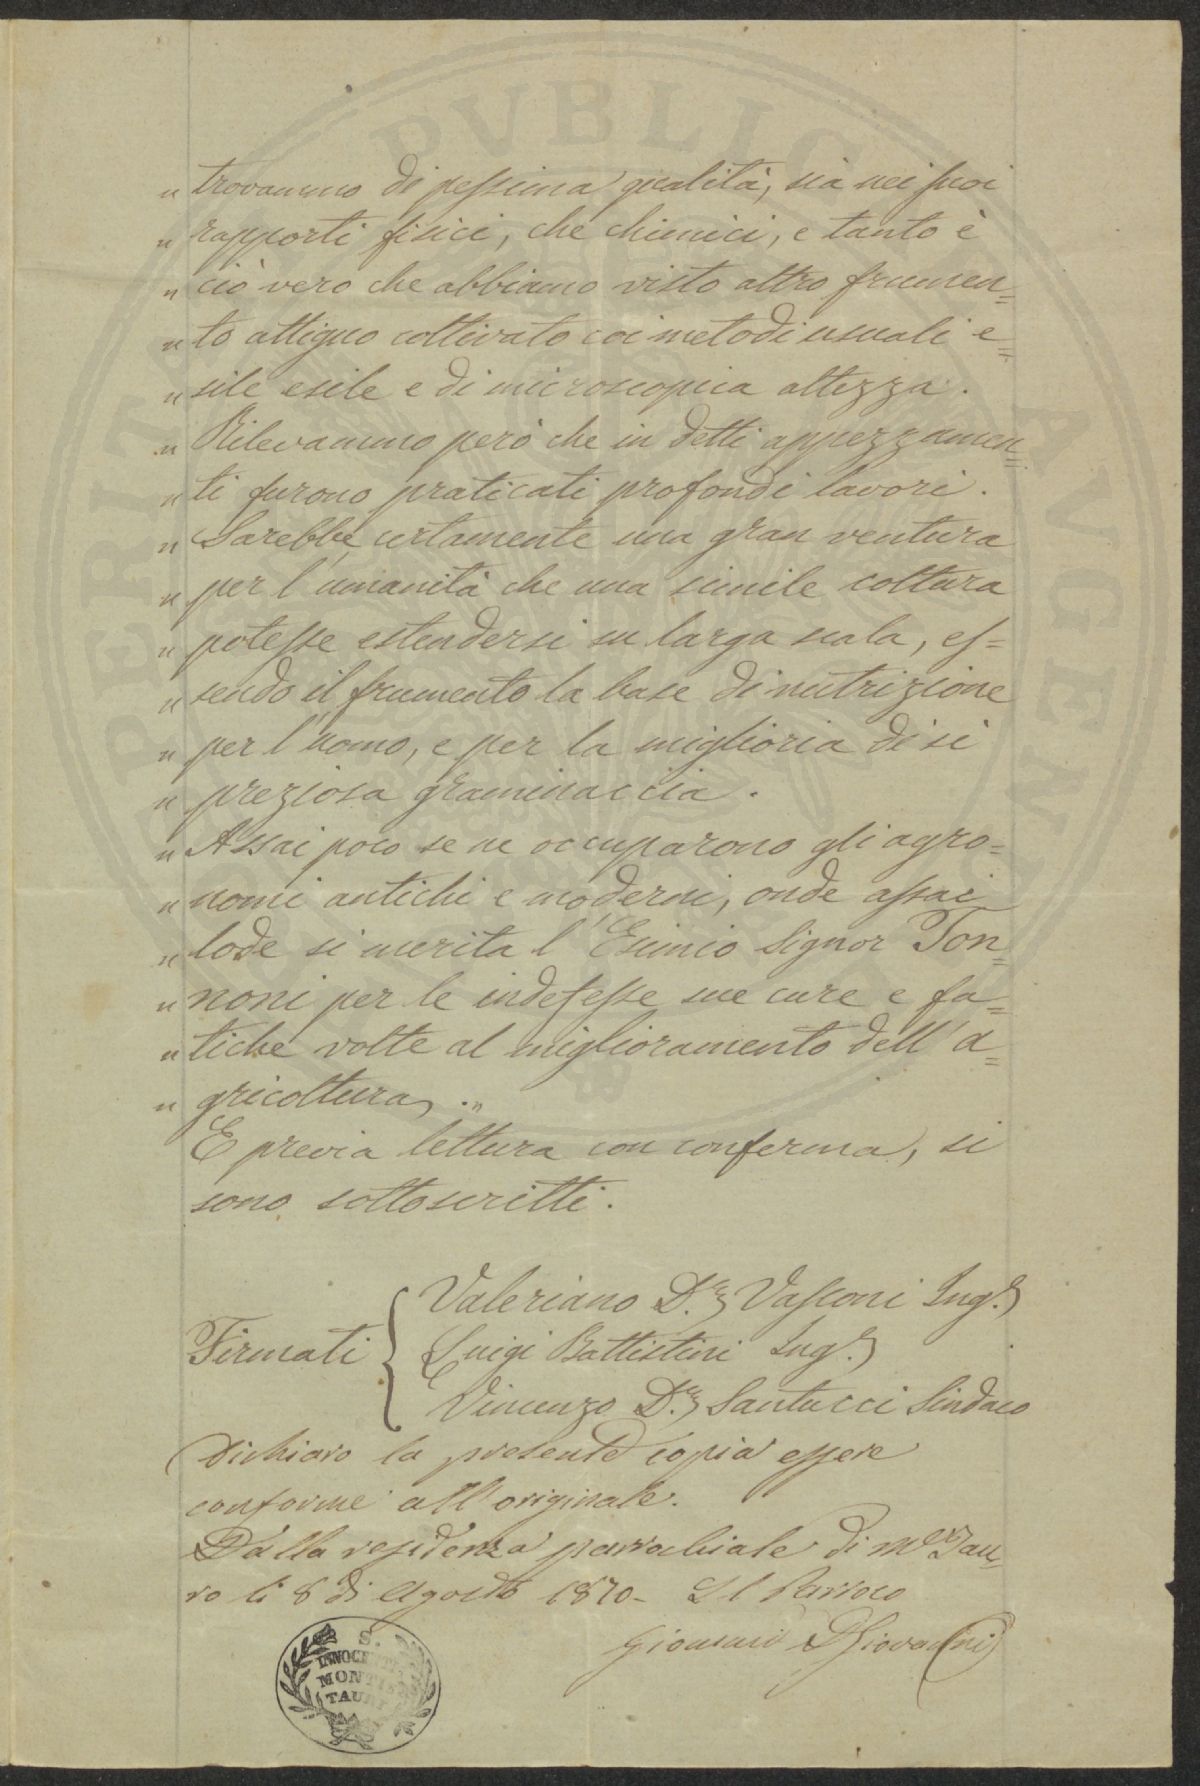 " trovammo di pessima qualità, sia nei suoi
" rapporti fisici, che chimici, e tanto è
" ciò vero che abbiamo visto altro frumen=
" to attiguo coltivato coi metodi usuali e=
" sile esile e di microscopica altezza.
" Rilevammo però che in detti appezzamen=
" ti furono praticati profondi lavori.
" Sarebbe certamente una gran ventura
" per l'umanità che una simile coltura
" potesse estendersi su larga scala, es=
" sendo il frumento la base di nutrizione
" per l'uomo, e per la miglioria di sì
" preziosa graminaccia.
" Assai poco se ne occuparono gli agro=
" nomi antichi e moderni, onde assai
" lode si merita l'Esimio Signor Ton=
" noni per le indefesse sue cure e fa=
" tiche volte al miglioramento dell'a=
" gricoltura."
E previa lettura con conferma, si
sono sottoscritti.
Valeriano D.r Vasconi Ing.e
Firmati { Luigi Battistini Ing.e
Vincenzo D.r Santucci Sindaco
Dichiaro la presente copia essere
conforme all'originale.
Dalla residenza parrochiale di M.e Tau=
ro li 8 di Agosto 1870 - Il Parroco
Giovanni D Giovannini
S.
INNOCENTI
MONTIS
TAURI
PERITA PVBLIC AVGEN